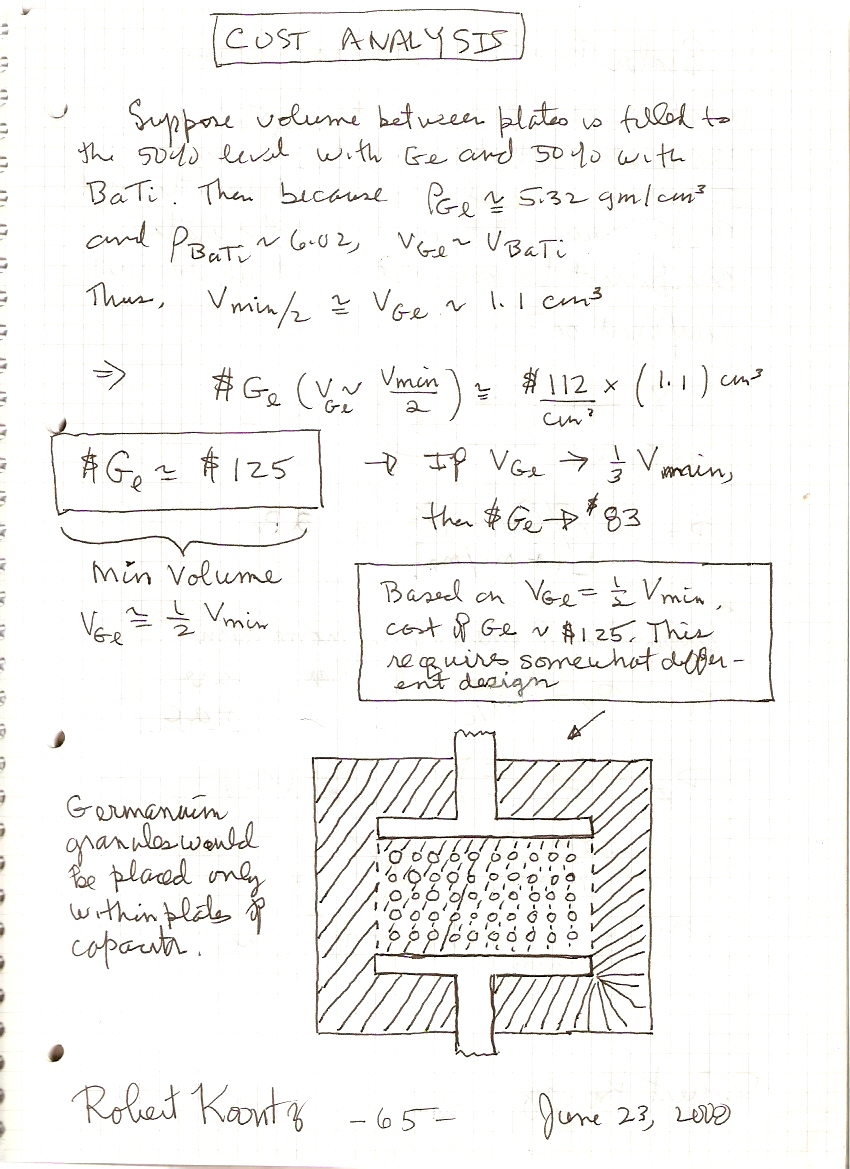 COST ANALYSIS
Suppose volume between plates is filled to
the 50% level with Ge and 50% with
BaTi. Then because ρGe ≅ 5.32 gm/cm³
and ρBaTi ~ 6.02, VGe ~ VBaTi
Thus, Vmin/2 ≅ VGe ~ 1.1 cm³
⇒ $Ge (VGe ~ Vmin/2) ≅ $112/cm³ × (1.1) cm³
$Ge ≃ $125
→ If VGe → 1/3 Vmain,
then $Ge → $83
Min Volume
VGe ≅ 1/2 Vmin
Based on VGe = 1/2 Vmin,
cost of Ge ~ $125. This
requires somewhat differ-
ent design
Germanium
granules would
be placed only
within plates of
capacitor.
Robert Koontz -65- June 23, 2000